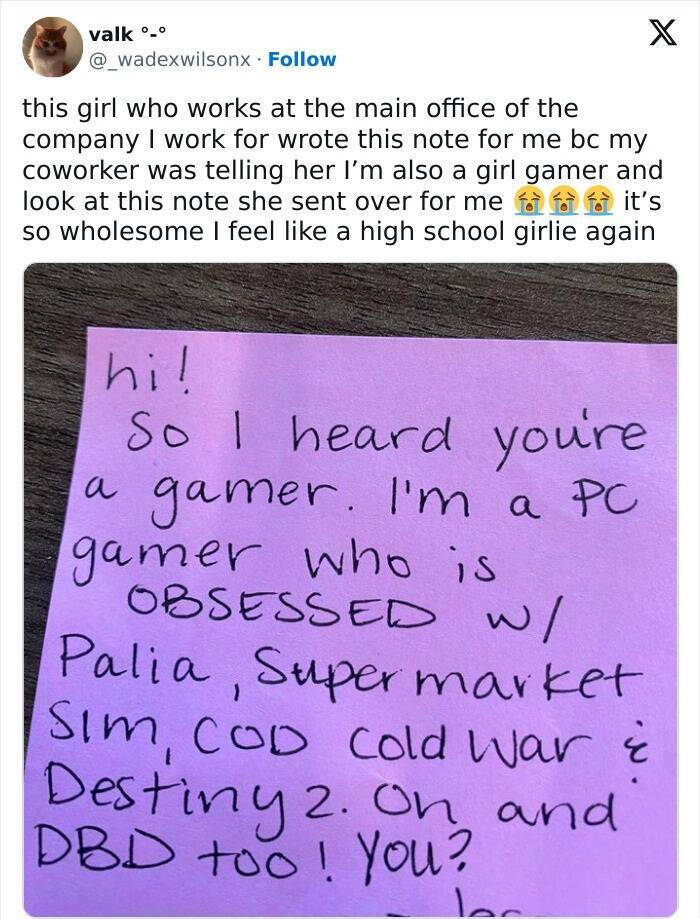 valk °-°
@_wadexwilsonx · Follow
X
this girl who works at the main office of the
company I work for wrote this note for me bc my
coworker was telling her I’m also a girl gamer and
look at this note she sent over for me 😭😭😭 it’s
so wholesome I feel like a high school girlie again
hi!
So I heard you're
a gamer. I'm a PC
gamer who is
OBSESSED w/
Palia, Supermarket
Sim, COD Cold War &
Destiny 2. Oh and
DBD too! You?